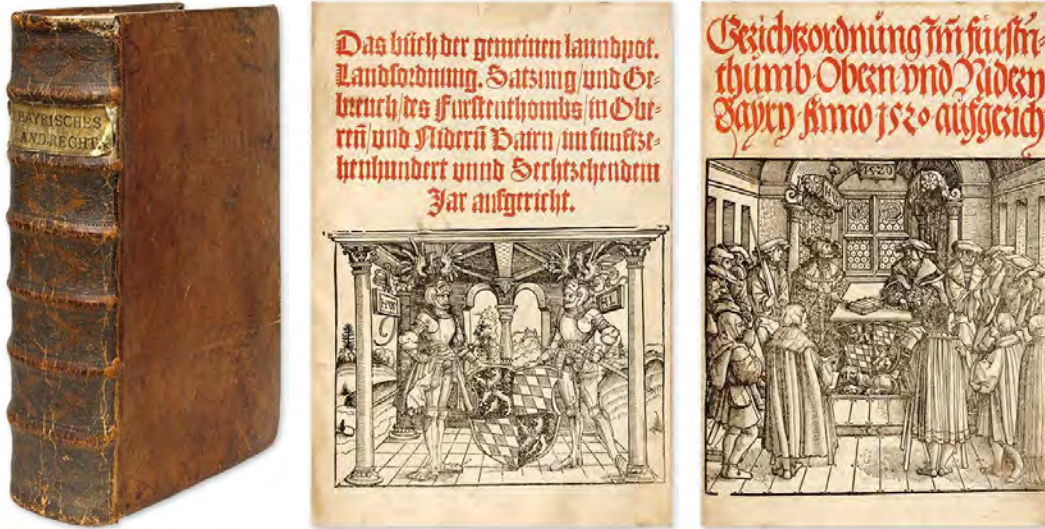 BAYRISCHES
LAND.RECHT.
Das büch der gemeinen lanndpot.
Landsordnung. Satzung/vnd Ge-
breuch/des Fürstenthombs/in Obe-
rñ/vnd Niderñ Bairn/im funftze-
henhundert vnnd Sechtzehendem
Jar aufgericht.
Gerichtzordnüng Im fürstn-
thumb Obern vnd Nidern
Bayrn Anno 1520 aufgericht
1520